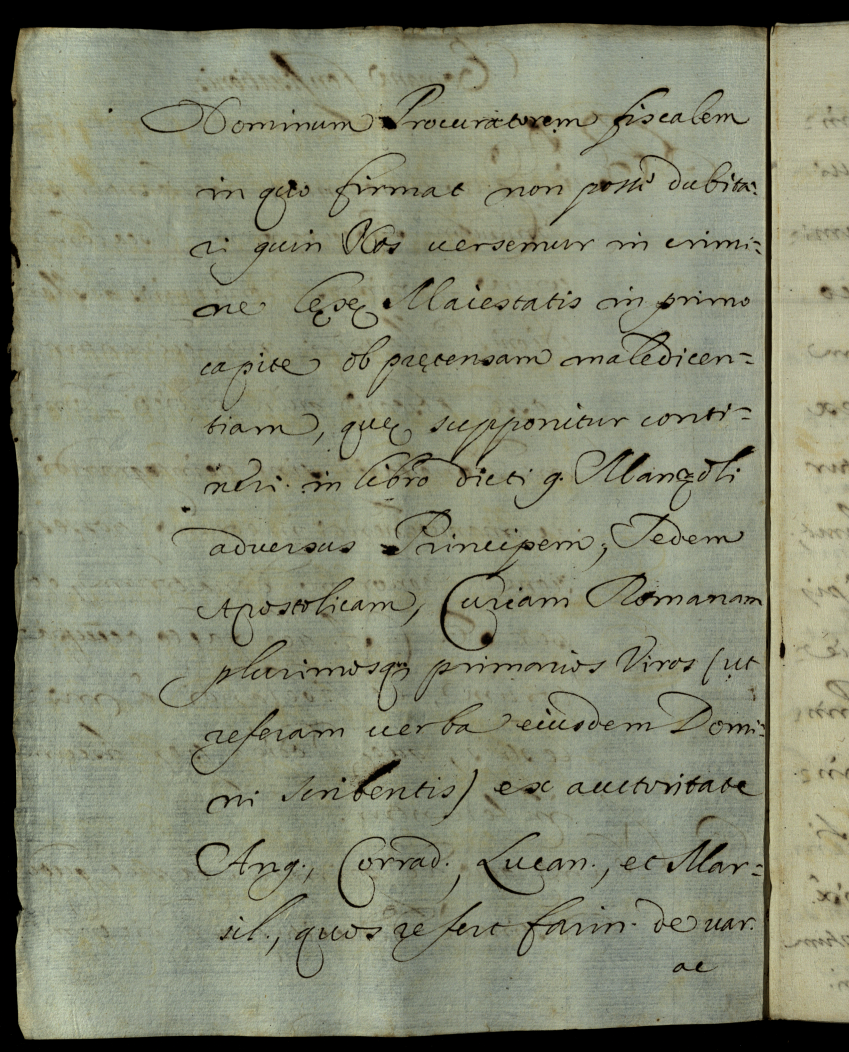 Dominum Procuratorem fiscalem
in quo firmat non posse dubita=
ri quin Nos uersemur in crimi=
ne lęsę Maiestatis in primo
capite ob prętensam maledicen=
tiam, quę supponitur conti=
neri in libro dicti q. Manzoli
aduersus Principem, Sedem
Apostolicam, Curiam Romanam
plurimosq; primarios Viros (ut
referam uerba eiusdem Domi=
ni scribentis) ex auctoritate
Ang., Corrad., Lucan., et Mar=
sil., quos refert farin. de uar.
ac